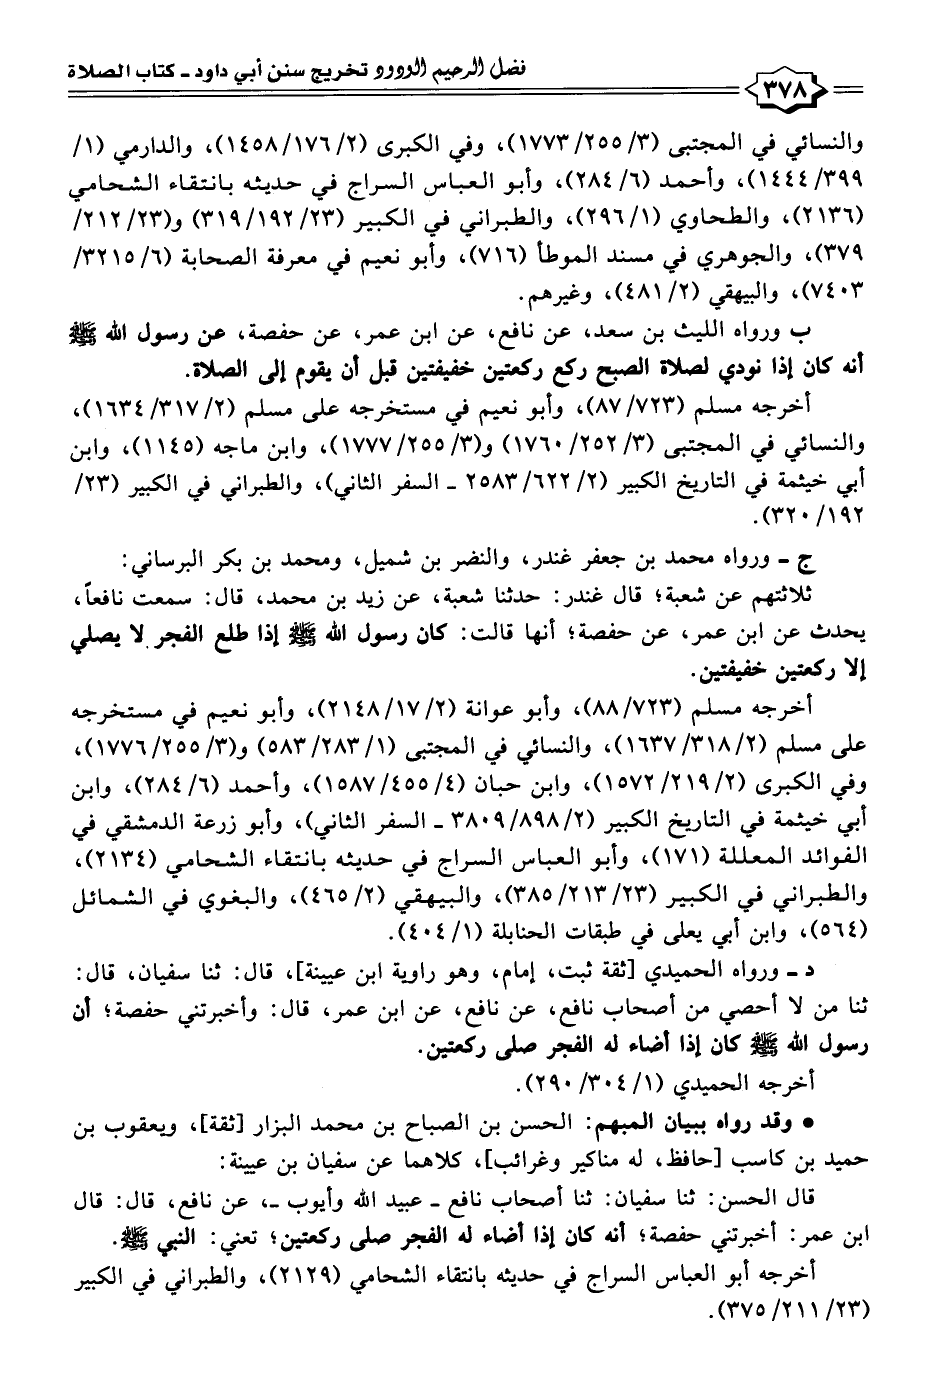 فضل الرحيم الودود تخريج سنن أبي داود - كتاب الصلاة
٣٧٨
والنسائي في المجتبى (١٧٧٣/٢٥٥/٣)، وفي الكبرى (١٤٥٨/١٧٦/٢)، والدارمي (١/
١٤٤٤/٣٩٩)، وأحمد (٢٨٤/٦)، وأبو العباس السراج في حديثه بانتقاء الشحامي
(٢١٣٦)، والطحاوي (٢٩٦/١)، والطبراني في الكبير (٣١٩/١٩٢/٢٣) و(٢١٢/٢٣/
٣٧٩)، والجوهري في مسند الموطأ (٧١٦)، وأبو نعيم في معرفة الصحابة (٣٢١٥/٦/
٧٤٠٣)، والبيهقي (٤٨١/٢)، وغيرهم.
ب ورواه الليث بن سعد، عن نافع، عن ابن عمر، عن حفصة، عن رسول الله ﷺ
أنه كان إذا نودي لصلاة الصبح ركع ركعتين خفيفتين قبل أن يقوم إلى الصلاة.
أخرجه مسلم (٨٧/٧٢٣)، وأبو نعيم في مستخرجه على مسلم (١٦٣٤/٣١٧/٢)،
والنسائي في المجتبى (١٧٦٠/٢٥٢/٣) و(١٧٧٧/٢٥٥/٣)، وابن ماجه (١١٤٥)، وابن
أبي خيثمة في التاريخ الكبير (٢٥٨٣/٦٢٢/٢ - السفر الثاني)، والطبراني في الكبير (٢٣/
٣٢٠/١٩٢).
ج - ورواه محمد بن جعفر غندر، والنضر بن شميل، ومحمد بن بكر البرساني:
ثلاثتهم عن شعبة؛ قال غندر: حدثنا شعبة، عن زيد بن محمد، قال: سمعت نافعاً،
يحدث عن ابن عمر، عن حفصة؛ أنها قالت: كان رسول الله ﷺ إذا طلع الفجر لا يصلي
إلا ركعتين خفيفتين.
أخرجه مسلم (٨٨/٧٢٣)، وأبو عوانة (٢١٤٨/١٧/٢)، وأبو نعيم في مستخرجه
على مسلم (١٦٣٧/٣١٨/٢)، والنسائي في المجتبى (٥٨٣/٢٨٣/١) و(١٧٧٦/٢٥٥/٣)،
وفي الكبرى (١٥٧٢/٢١٩/٢)، وابن حبان (١٥٨٧/٤٥٥/٤)، وأحمد (٢٨٤/٦)، وابن
أبي خيثمة في التاريخ الكبير (٣٨٠٩/٨٩٨/٢ - السفر الثاني)، وأبو زرعة الدمشقي في
الفوائد المعللة (١٧١)، وأبو العباس السراج في حديثه بانتقاء الشحامي (٢١٣٤)،
والطبراني في الكبير (٣٨٥/٢١٣/٢٣)، والبيهقي (٤٦٥/٢)، والبغوي في الشمائل
(٥٦٤)، وابن أبي يعلى في طبقات الحنابلة (٤٠٤/١).
د - ورواه الحميدي [ثقة ثبت، إمام، وهو راوية ابن عيينة]، قال: ثنا سفيان، قال:
ثنا من لا أحصي من أصحاب نافع، عن نافع، عن ابن عمر، قال: وأخبرتني حفصة؛ أن
رسول الله ﷺ كان إذا أضاء له الفجر صلى ركعتين.
أخرجه الحميدي (٢٩٠/٣٠٤/١).
• وقد رواه ببيان المبهم: الحسن بن الصباح بن محمد البزار [ثقة]، ويعقوب بن
حميد بن كاسب [حافظ، له مناكير وغرائب]، كلاهما عن سفيان بن عيينة:
قال الحسن: ثنا سفيان: ثنا أصحاب نافع - عبيد الله وأيوب -، عن نافع، قال: قال
ابن عمر: أخبرتني حفصة؛ أنه كان إذا أضاء له الفجر صلى ركعتين؛ تعني: النبي ﷺ.
أخرجه أبو العباس السراج في حديثه بانتقاء الشحامي (٢١٢٩)، والطبراني في الكبير
(٣٧٥/٢١١/٢٣).